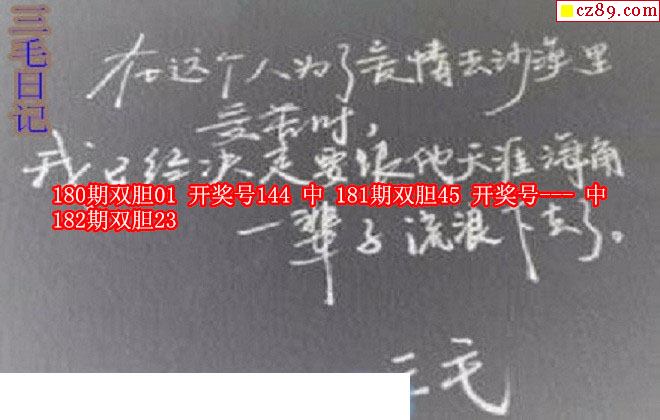 cz89.com
三毛日记
在这个人为了爱情去沙漠里
受苦时，
我已经决定要跟他天涯海角
180期双胆01 开奖号144 中 181期双胆45 开奖号--- 中
182期双胆23
一辈子流浪下去了。
三毛